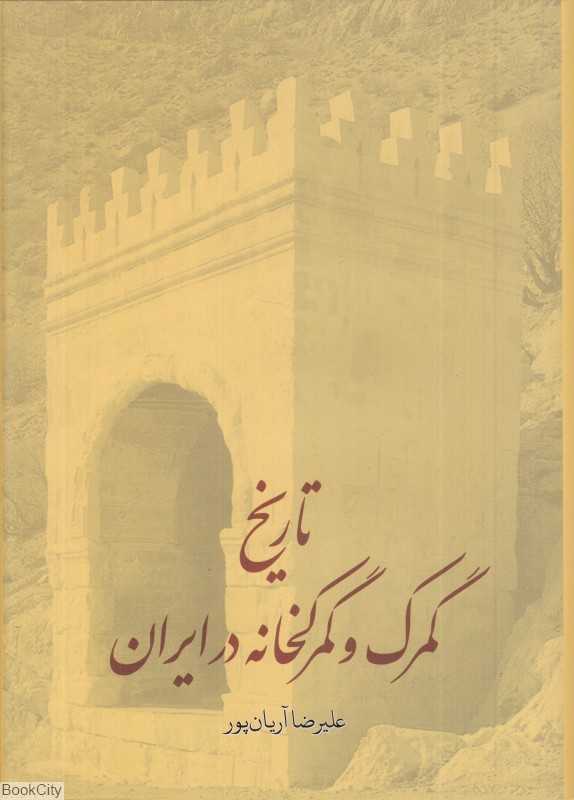 تاریخ
گمرک و گمرکخانه در ایران
علیرضا آریان‌پور
BookCity